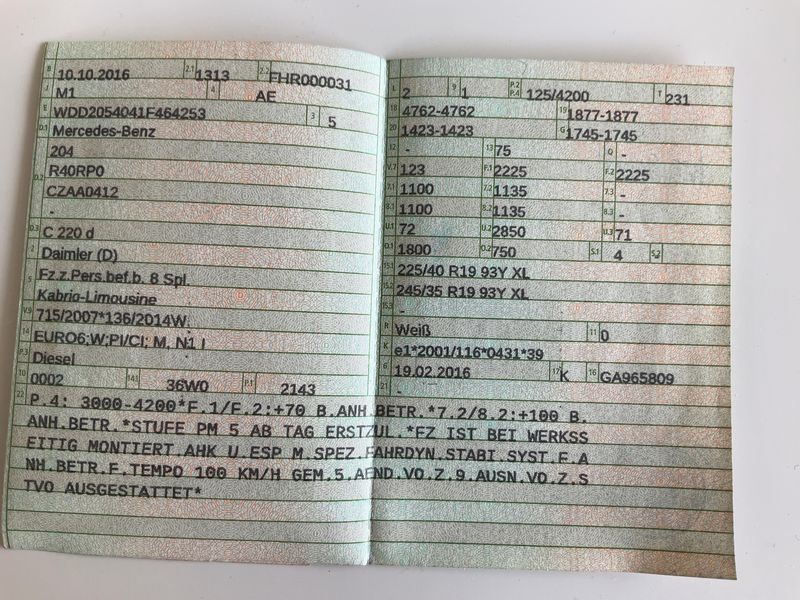 B 10.10.2016 2.1 1313 2.2 FHR000031
J M1 4 AE
E WDD2054041F464253 3 5
D.1 Mercedes-Benz
204
D.2 R40RP0
CZAA0412
-
D.3 C 220 d
2 Daimler (D)
5 Fz.z.Pers.bef.b. 8 Spl.
Kabrio-Limousine
V.9 715/2007*136/2014W
14 EURO6;W;PI/CI; M, N1 I
P.3 Diesel
10 0002 14.1 36W0 P.1 2143
L 2 9 1 P.2 P.4 125/4200 T 231
18 4762-4762 19 1877-1877
20 1423-1423 G 1745-1745
12 - 13 75 Q -
V.7 123 F.1 2225 F.2 2225
7.1 1100 7.2 1135 7.3 -
8.1 1100 8.2 1135 8.3 -
U.1 72 U.2 2850 U.3 71
O.1 1800 O.2 750 S.1 4 S.2
15.1 225/40 R19 93Y XL
15.2 245/35 R19 93Y XL
15.3 -
R Weiß 11 0
K e1*2001/116*0431*39
6 19.02.2016 17 K 16 GA965809
21 -
22 P.4: 3000-4200*F.1/F.2:+70 B.ANH.BETR.*7.2/8.2:+100 B.
ANH.BETR.*STUFE PM 5 AB TAG ERSTZUL.*FZ IST BEI WERKSS
EITIG MONTIERT.AHK U.ESP M.SPEZ.FAHRDYN.STABI.SYST.F.A
NH.BETR.F.TEMPO 100 KM/H GEM.5.AEND.VO.Z.9.AUSN.VO.Z.S
TVO AUSGESTATTET*